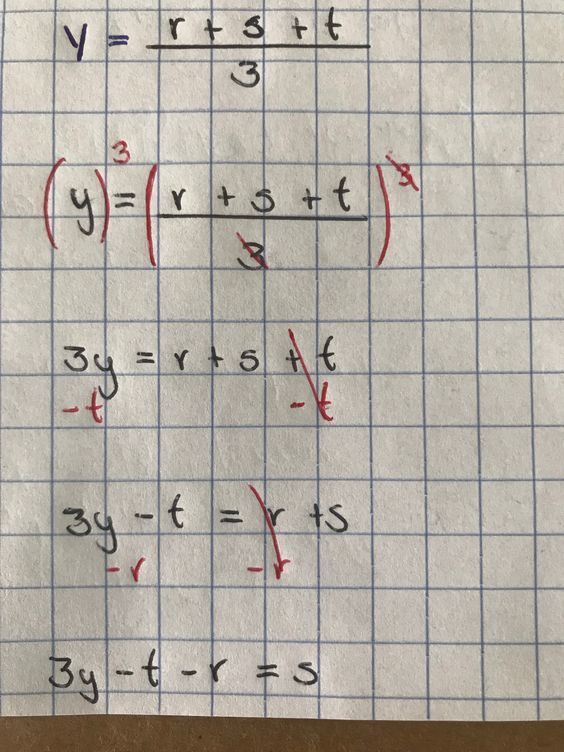 y = r + s + t
3
(y)³ = (r + s + t)³
3
3y = r + s + t
-t -t
3y - t = r + s
-r -r
3y - t - r = s